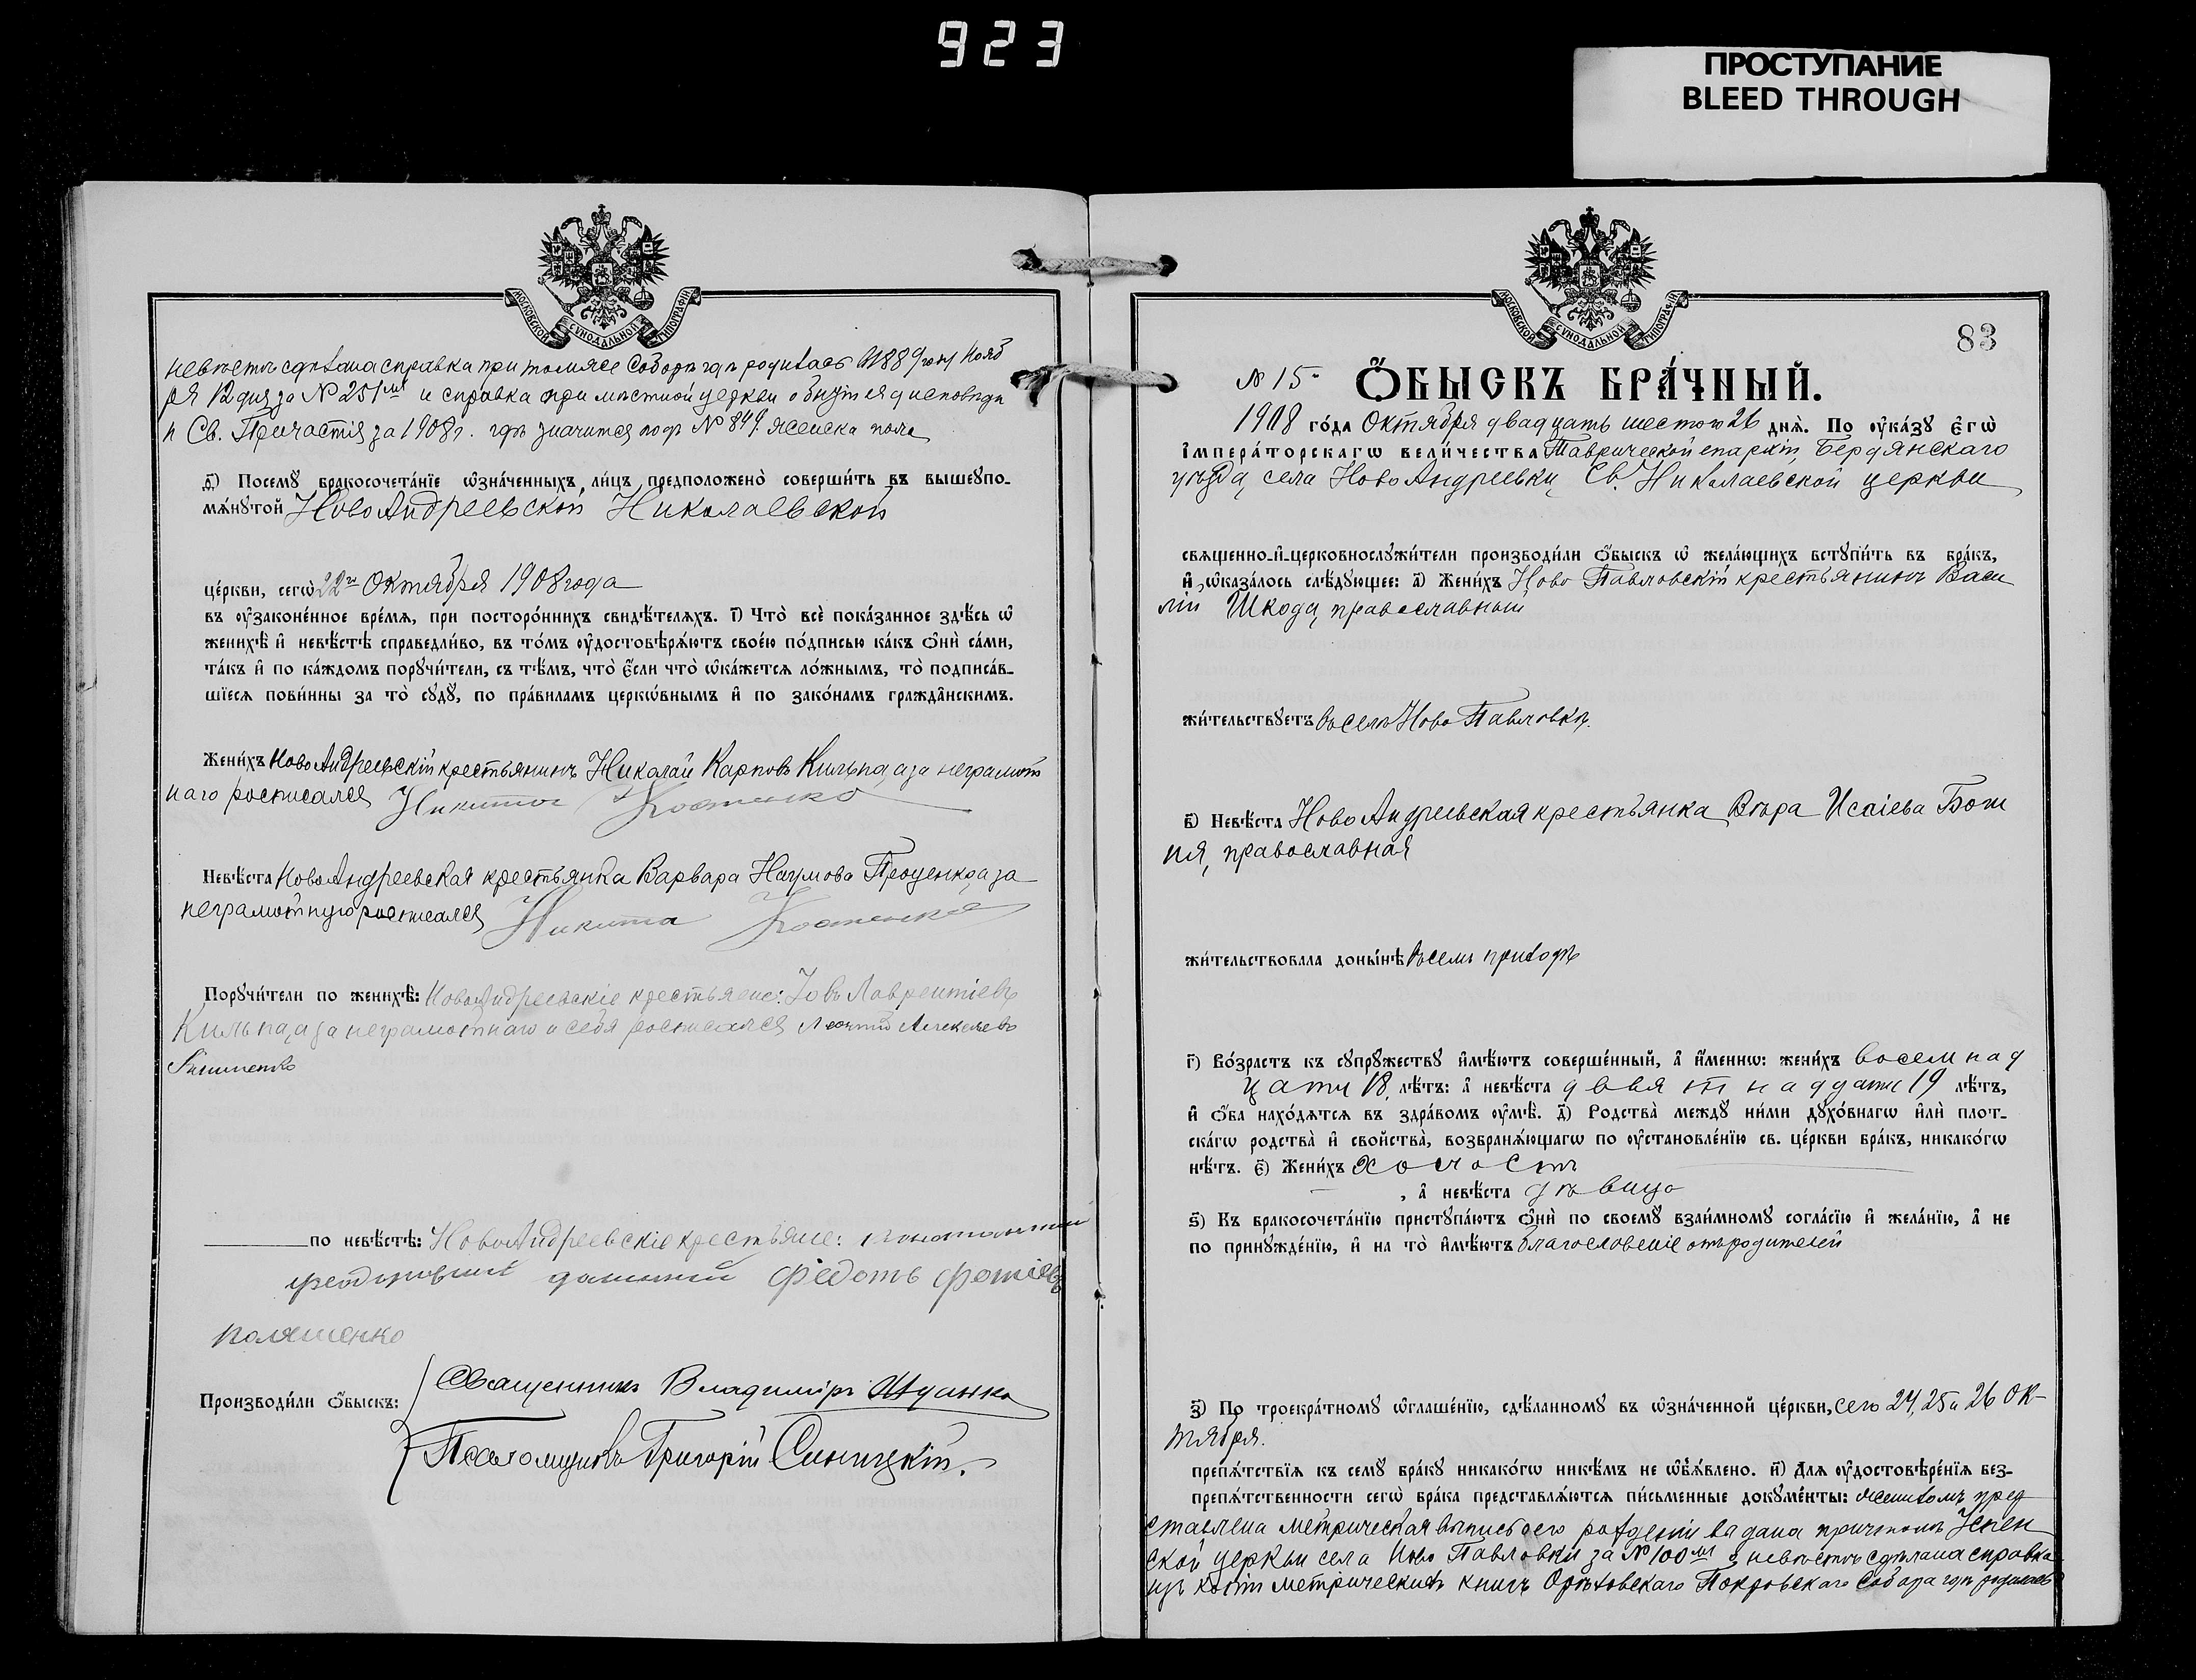 923
ПРОСТУПАНИЕ
BLEED THROUGH
МОСКОВСКОЙ СУНОДАЛЬНОЙ ТИПОГРАФІИ
невѣстѣ сдѣлана справка при томже Соборѣ гдѣ родилась 1889 году Нояб
ря 12 дня за № 251мъ и справка при мѣстной церкви о бытія у исповѣди
и Св. Причастія за 1908 г. гдѣ значится подъ № 849. женска пола
д҃) Посемꙋ бракосочета́нїе ѡ҆зна́ченныхъ ли́цъ предположено̀ соверши́ть въ вышеꙋпо-
мѧ́нꙋтой НовоАндреевской Николаевской
це́ркви, сегѡ̀ 22го Октября 1908 года
въ ᲂу҆зако́ненное вре́мѧ, при посторо́ннихъ свидѣ́телѧхъ. і҃) Что̀ всѐ пока́занное здѣ́сь ѡ҆
женихѣ̀ и҆ невѣ́стѣ справедли́во, въ то́мъ ᲂу҆достовѣрѧ́ютъ свое́ю по́дписью ка́къ ѻ҆нѝ са́ми,
та́къ и҆ по ка́ждомъ порꙋчи́тели, съ тѣ́мъ, что̀ є҆́сли что̀ ѡ҆ка́жетсѧ ло́жнымъ, то̀ подписа́в-
шїесѧ пови́нны за то̀ сꙋдꙋ̀, по пра́виламъ церко́внымъ и҆ по зако́намъ гражда́нскимъ.
Жени́хъ НовоАндреевскій крестьянинъ Николай Карповъ Кильпа, а за неграмот
наго росписался Никита Костенко
Невѣ́ста НовоАндреевская крестьянка Варвара Наумова Проценко, а за
неграмотную росписался Никита Костенко
Порꙋчи́тели по женихѣ̀: НовоАндреевскіе крестьяне: Іовъ Лаврентіевъ
Кильпа, а за неграмотнаго и себя росписался Леонтій Алексѣевъ
по невѣ́стѣ: НовоАндреевскіе крестьяне:
Федотъ Фотіевъ
Поляшенко
Производи́ли ѻ҆́быскъ: Священникъ Владиміръ
Псаломщикъ Григорій Синицкій.
МОСКОВСКОЙ СУНОДАЛЬНОЙ ТИПОГРАФІИ
83
№ 15. Ѻ҆́БЫСКЪ БРА́ЧНЫЙ.
1908 го́да Октября двадцать шестого 26 днѧ̀. По ᲂу҆ка́зꙋ є҆гѡ̀
і҆мпера́торскагѡ вели́чества Таврической епархіи, Бердянскаго
уѣзда, села НовоАндреевки, Св. Николаевской церкви
свѧще́нно-и҆-церковнослꙋжи́тели производи́ли ѻ҆́быскъ ѡ҆ жела́ющихъ встꙋпи́ть въ бра́къ,
и҆ ѡ҆каза́лось слѣ́дꙋющее: а҃) Жени́хъ Ново Павловскій крестьянинъ Васи
лій Шкода, православный
жи́тельствꙋетъ въ селѣ Ново Павловкѣ.
в҃) Невѣ́ста НовоАндреевская крестьянка Вѣра Исаіева Бож
ия, православная
жи́тельствовала доны́нѣ въ семъ приходѣ
г҃) Во́зрастъ къ сꙋпрꙋ́жествꙋ и҆мѣ́ютъ соверше́нный, а҆ и҆́меннѡ: жени́хъ восемнад
цати 18. лѣ́тъ: а҆ невѣ́ста девятнадцати 19 лѣ́тъ,
и҆ ѻ҆́ба нахо́дѧтсѧ въ здра́вомъ ᲂу҆мѣ̀. д҃) Родства̀ междꙋ̀ ни́ми дꙋхо́внагѡ и҆лѝ плот-
ска́гѡ родства̀ и҆ сво́йства̀, возбранѧ́ющагѡ по ᲂу҆становле́нїю св. це́ркви бра́къ, никако́гѡ
нѣ́тъ. є҃) Жени́хъ холостъ
, а҆ невѣ́ста дѣвица
ѕ҃) Къ бракосочета́нїю пристꙋпа́ютъ ѻ҆нѝ по своемꙋ̀ взаи́мномꙋ согла́сїю и҆ жела́нїю, а҆ не
по принꙋжде́нїю, и҆ на то̀ и҆мѣ́ютъ благословеніе отъ родителей
з҃) По троекра́тномꙋ ѡ҆глаше́нїю, сдѣ́ланномꙋ въ ѡ҆зна́ченной це́ркви, сего 24, 25 и 26 Ок-
тября.
препѧ́тствїѧ къ семꙋ̀ бра́кꙋ никако́гѡ никѣ́мъ не ѡ҆бъѧ́влено. и҃) Длѧ ᲂу҆достовѣре́нїѧ без-
препѧ́тственности сегѡ̀ бра́ка представлѧ́ютсѧ пи́сьменные докꙋме́нты: женихомъ пред
ставлена метрическая выпись о его рожденіи выдана причтомъ Успен
ской церкви села Ново Павловки за № 100мъ о невѣстѣ сдѣлана справка
изъ копіи метрическихъ книгъ Орѣховскаго Покровскаго Собора гдѣ родилась